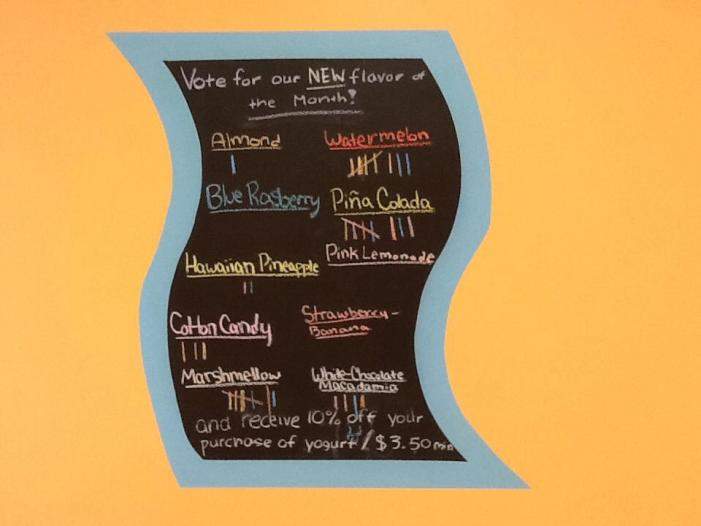 Vote for our NEW flavor of
the Month!
Almond
Watermelon
Blue Rasberry
Piña Colada
Pink Lemonade
Hawaiian Pineapple
Cotton Candy
Strawberry-
Banana
Marshmellow
White-Chocolate
Macadamia
and receive 10% off your
purchase of yogurt / $3.50 min